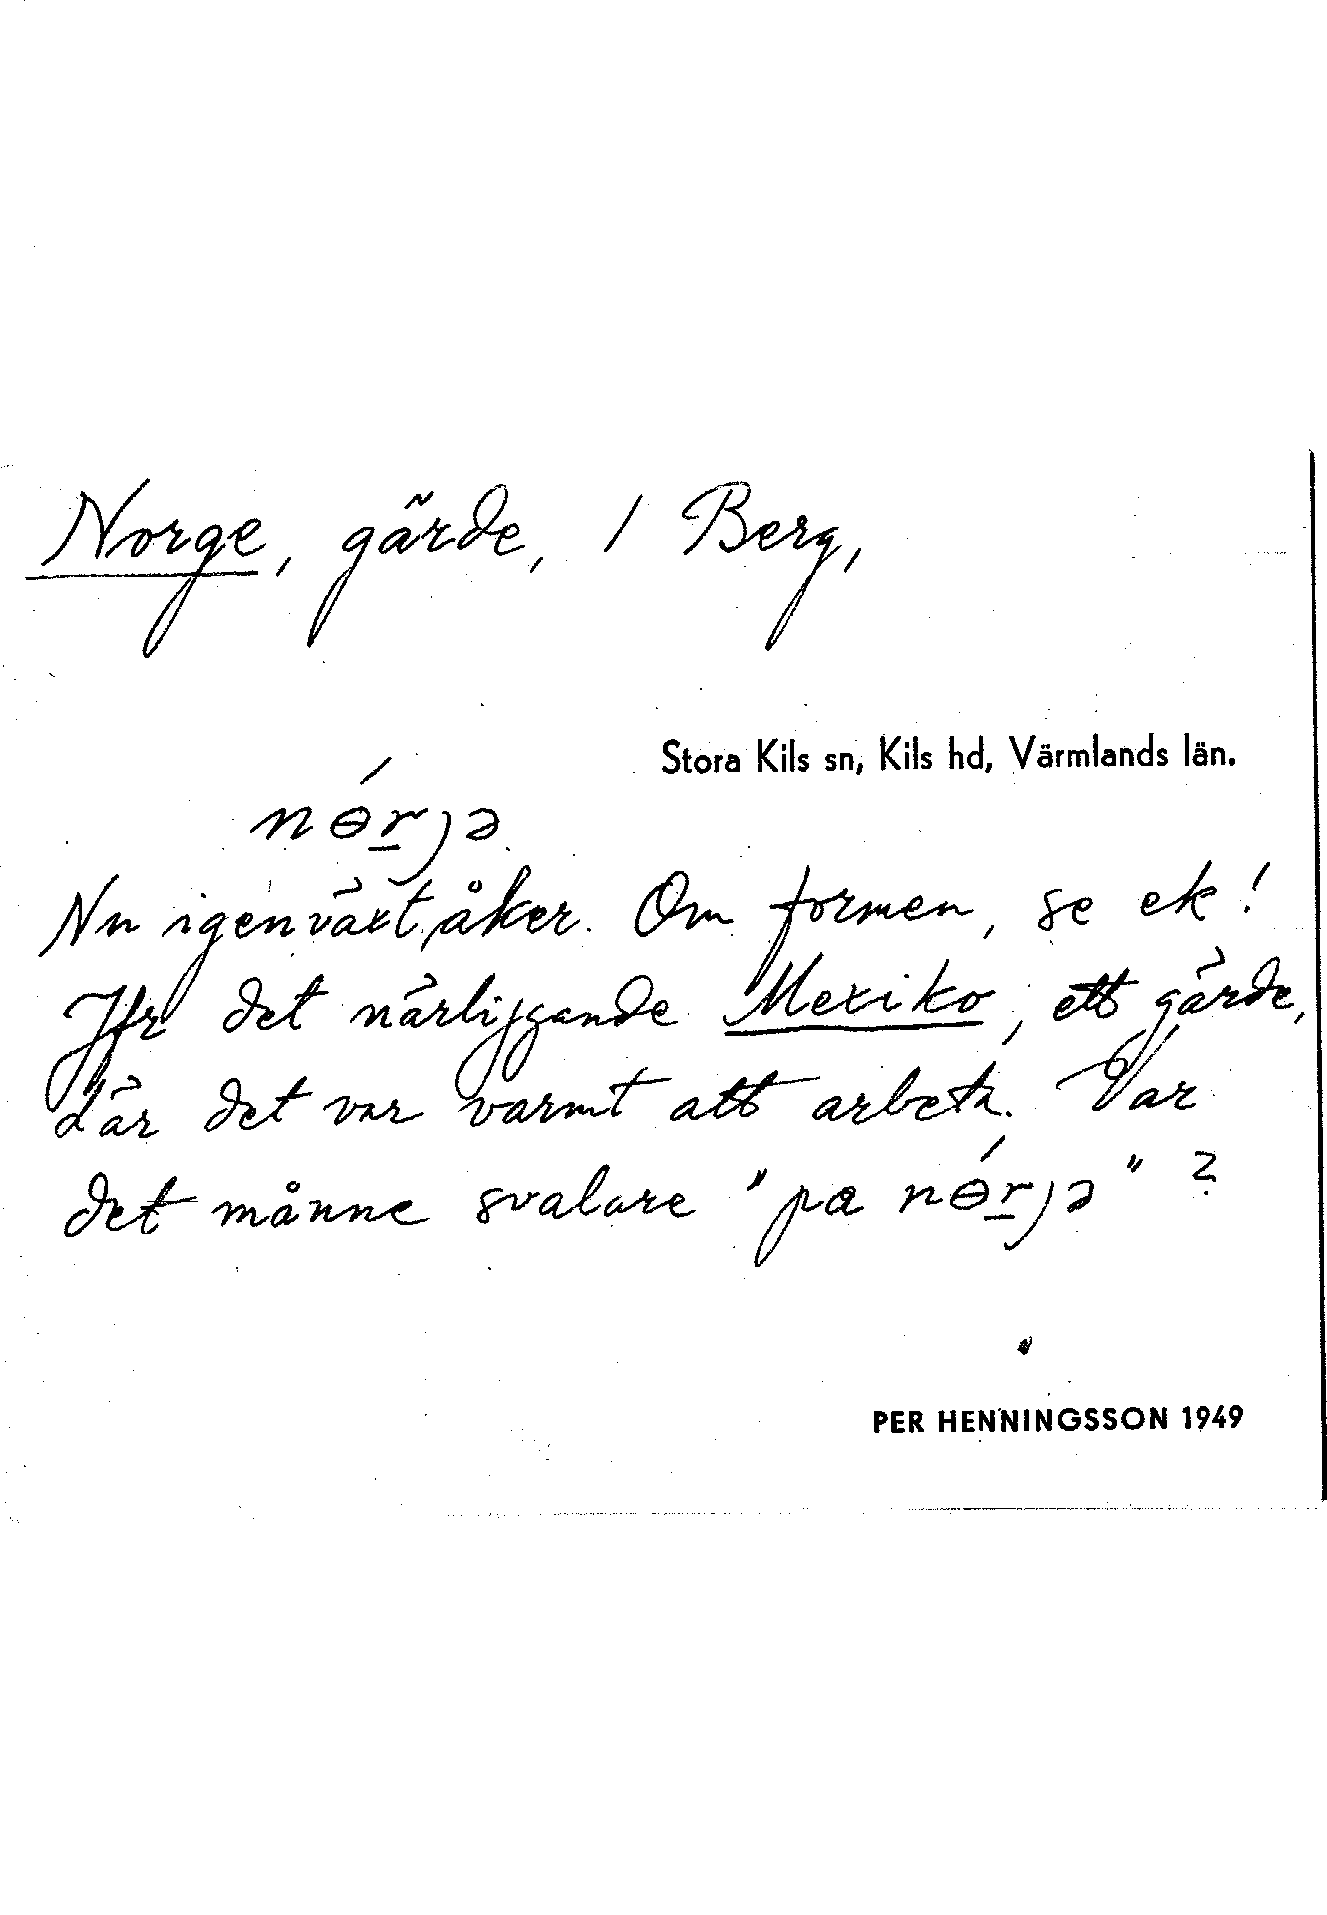 Norge, gärde, 1 Berg,
Stora Kils sn, Kils hd, Värmlands län.
nɵ́r̲jə
Nu igenväxt åker. Om formen, se ek!
Jfr det närliggande Mexiko, ett gärde,
där det var varmt att arbeta. Var
det månne svalare "pa nɵ́r̲jə"?
PER HENNINGSSON 1949